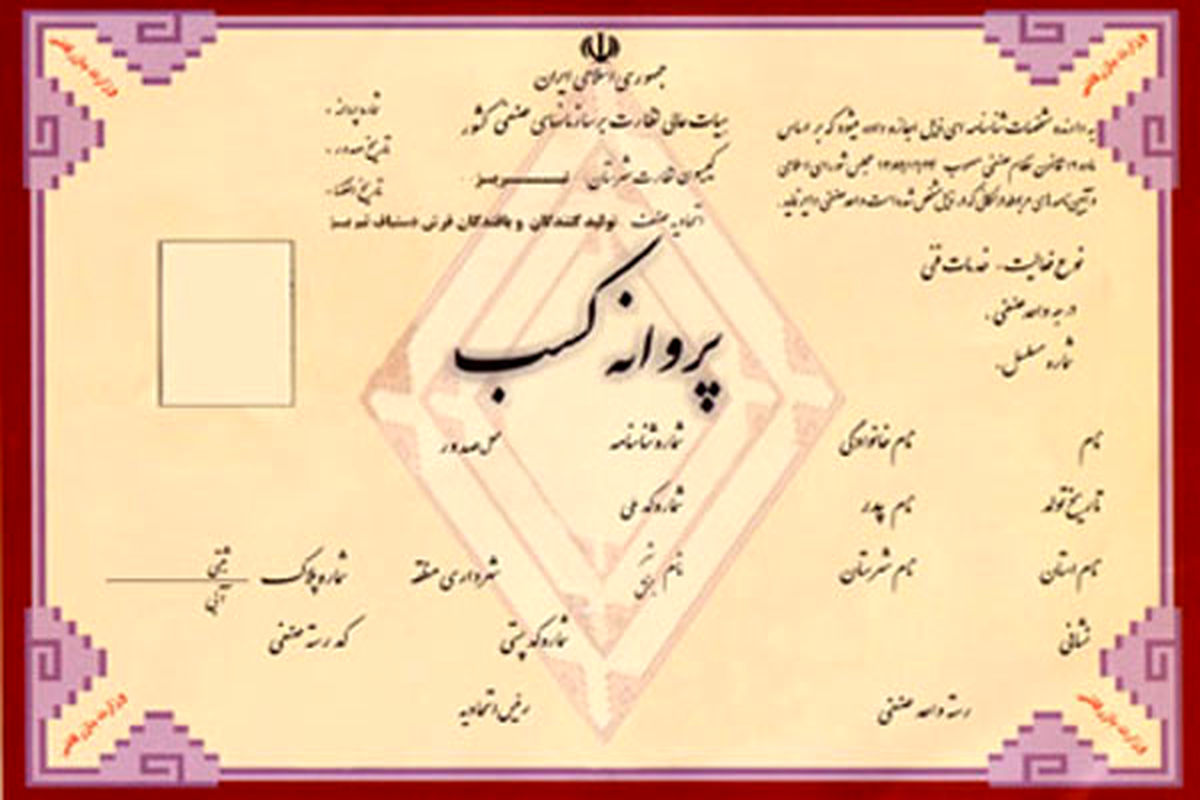 جمهوری اسلامی ایران
هیات عالی نظارت بر سازمانهای صنفی کشور
کمیسیون نظارت شهرستان تبریز
اتحادیه صنف تولید کنندگان و بافندگان فرش دستباف تبریز
شماره پروانه :
تاریخ صدور :
تاریخ انقضا :
به دارنده مشخصات شناسنامه ای ذیل اجازه داده میشود که بر اساس
ماده ۱۲ قانون نظام صنفی مصوب ۱۳۸۲/۱۲/۲۴ مجلس شورای اسلامی
و آیین نامه های مربوطه در مکانی که در ذیل مشخص شده است واحد صنفی دایر نماید.
نوع فعالیت : خدمات فنی
درجه واحد صنفی :
شماره مسلسل :
پروانه کسب
نام نام خانوادگی شماره شناسنامه محل صدور
تاریخ تولد نام پدر شماره کد ملی
نام استان نام شهرستان نام شهر بخش شهرداری منطقه شماره پلاک ثبتی آبی
نشانی شماره کد پستی کد رسته صنفی
رسته واحد صنفی رئیس اتحادیه
وزارت بازرگانی
وزارت بازرگانی
وزارت بازرگانی
وزارت بازرگانی